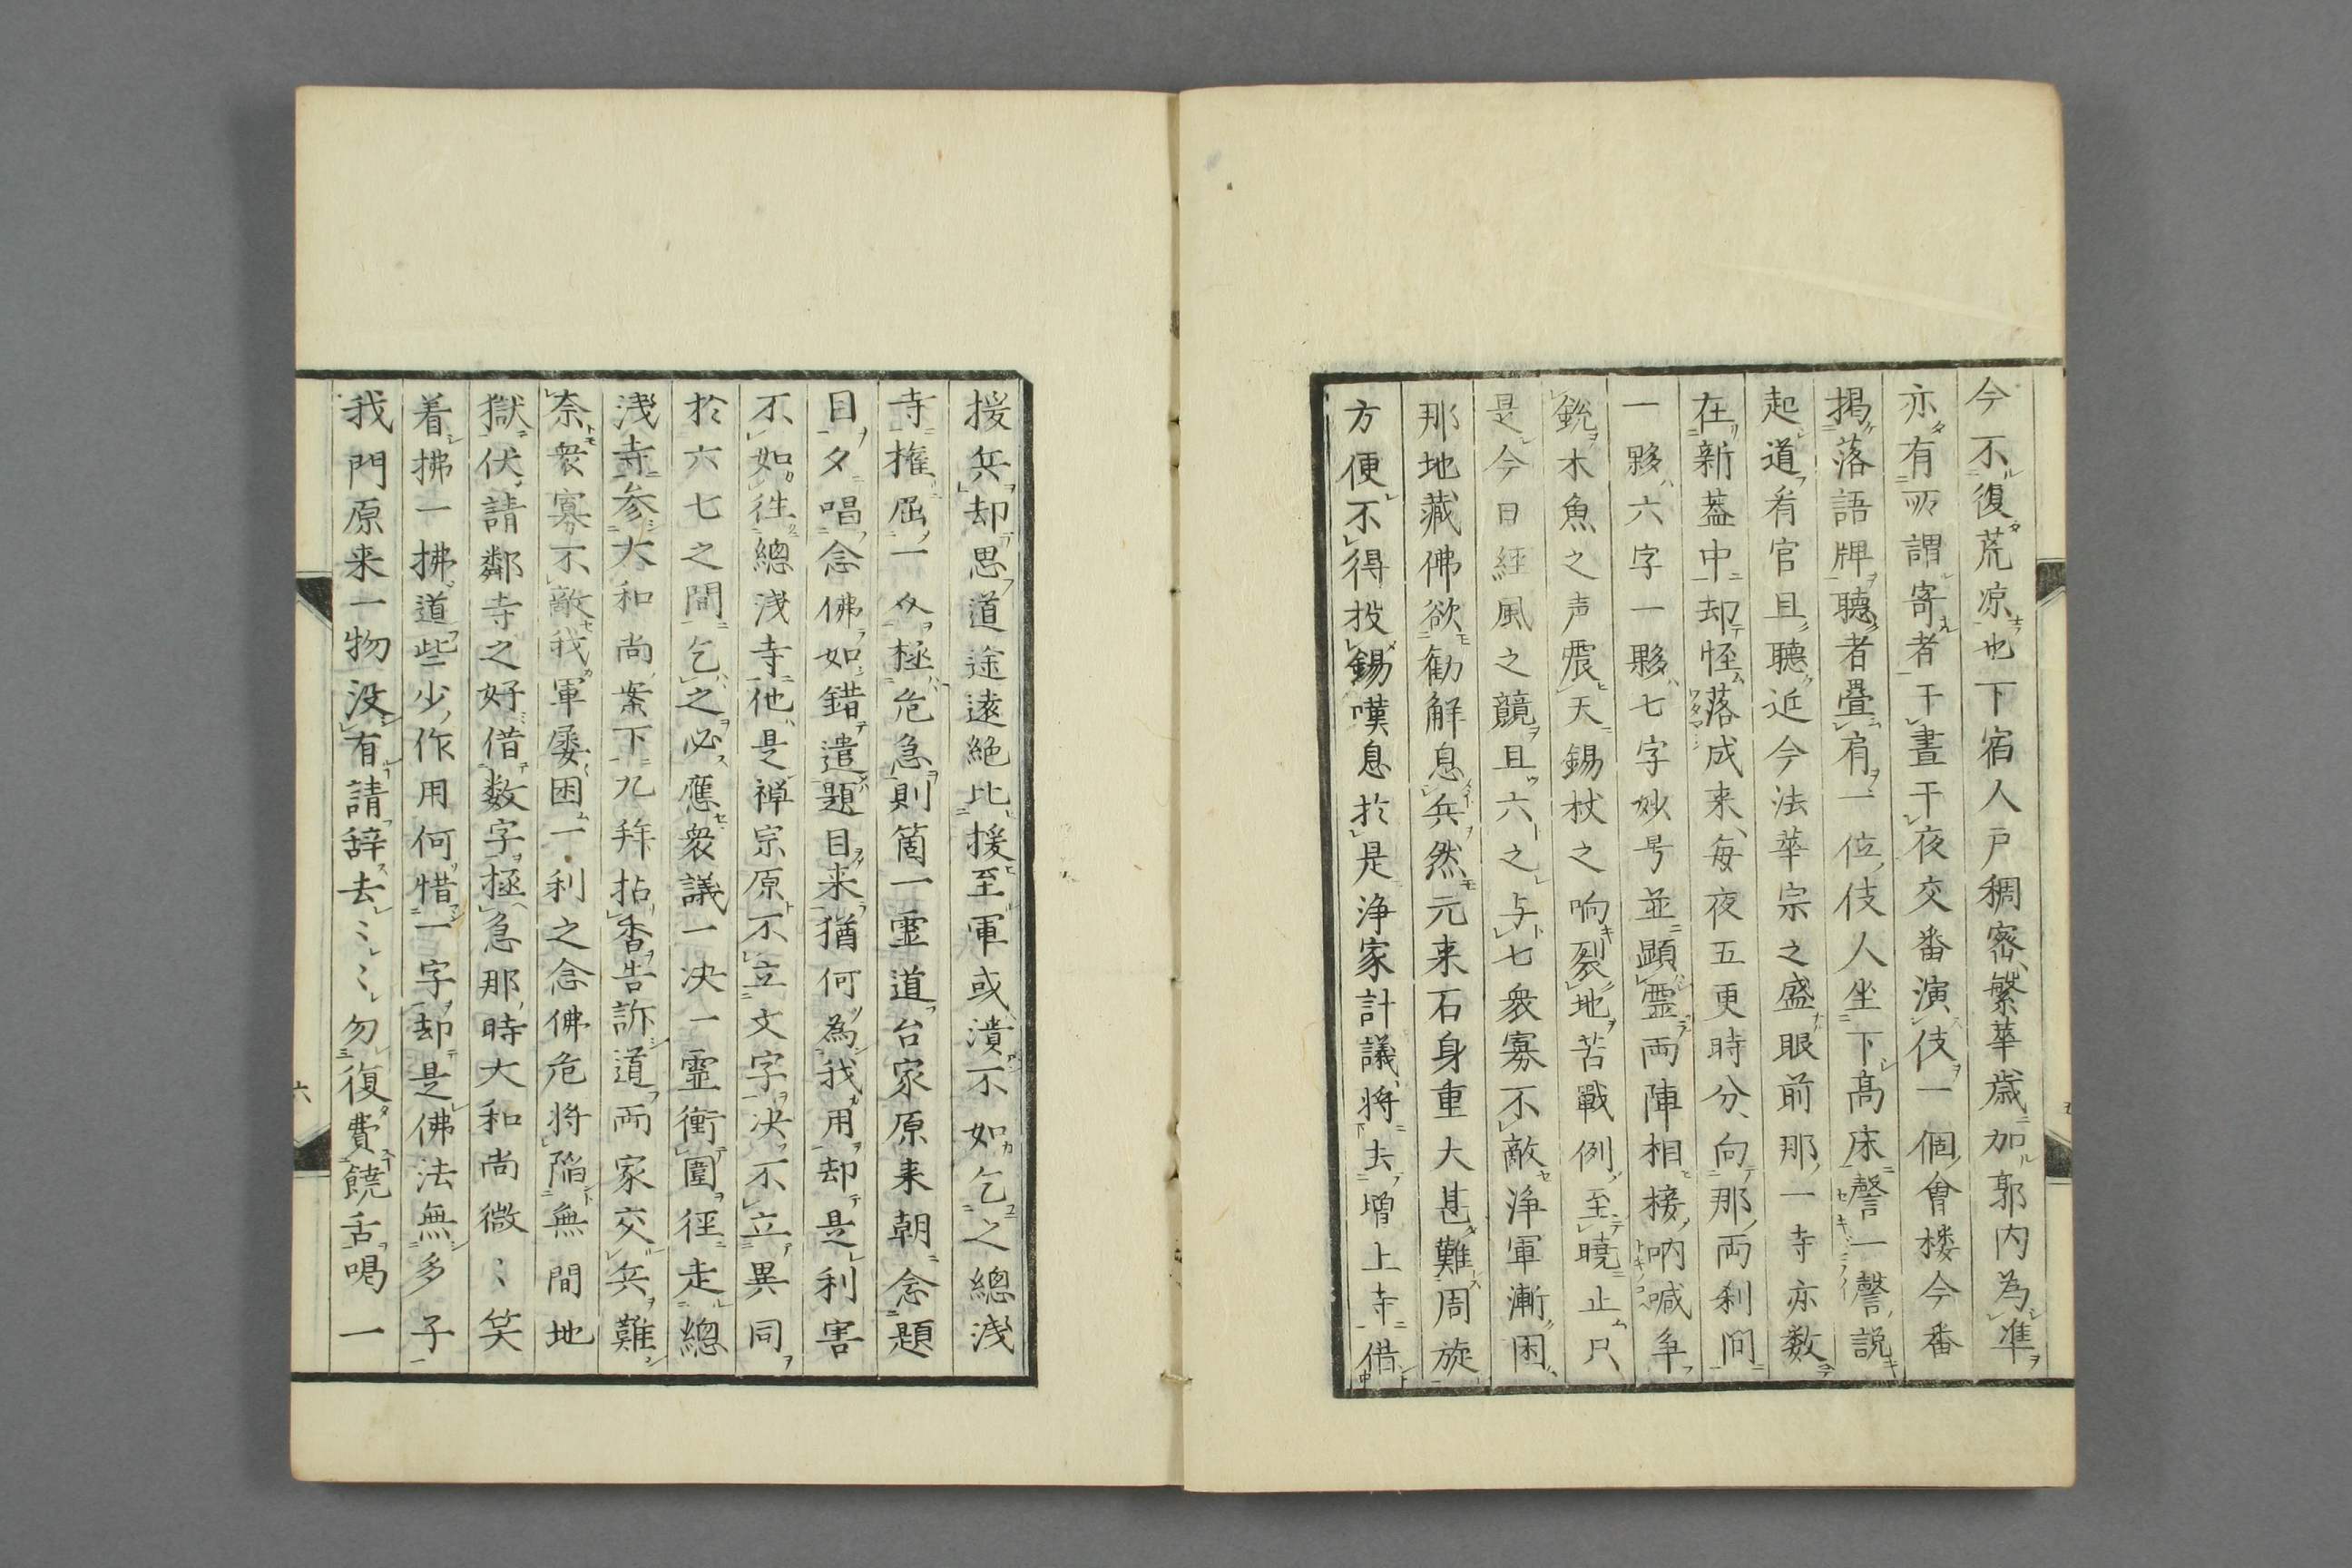 今不復荒涼也下宿人戸稠密繁華歳加郭内為準
亦有所謂寄者干晝干夜交番演伎一個會楼今番
掲落語牌聴者畳肩一位伎人坐下髙床謦一謦説
起道看官且聴近今法華宗之盛眼前那一寺亦数
在新葢中却恠落成来毎夜五更時分向那両刹間
一夥六字一夥七字妙号並顕霊両陣相接吶喊争
鋭木魚之声震天錫杖之响裂地苦戰例至暁止只
是今日経風之競且六之与七衆寡不敵浄軍漸困
那地藏佛欲勧解息兵然元来石身重大甚難周旋
方便不得投錫嘆息於是浄家計議将去増上寺借
五
援兵却思道途遠絶比援至軍或潰不如乞之總浅
寺権屈一久極危急則箇一霊道台家原来朝念題
目夕唱念佛如錯遣題目来猶何為我用却是利害
不如徃總浅寺他是禅宗原不立文字决不立異同
於六七之間乞之必應衆議一决一霊衝圍徑走總
浅寺参大和尚案下九拜拈香告訴道両家交兵難
奈衆寡不敵我軍屡困一利之念佛危将陥無間地
獄伏請鄰寺之好借数字極急那時大和尚微〻笑
着拂一拂道些少作用何惜一字却是佛法無多子
我門原来一物没有請辞去〻〻勿復費饒舌喝一
六